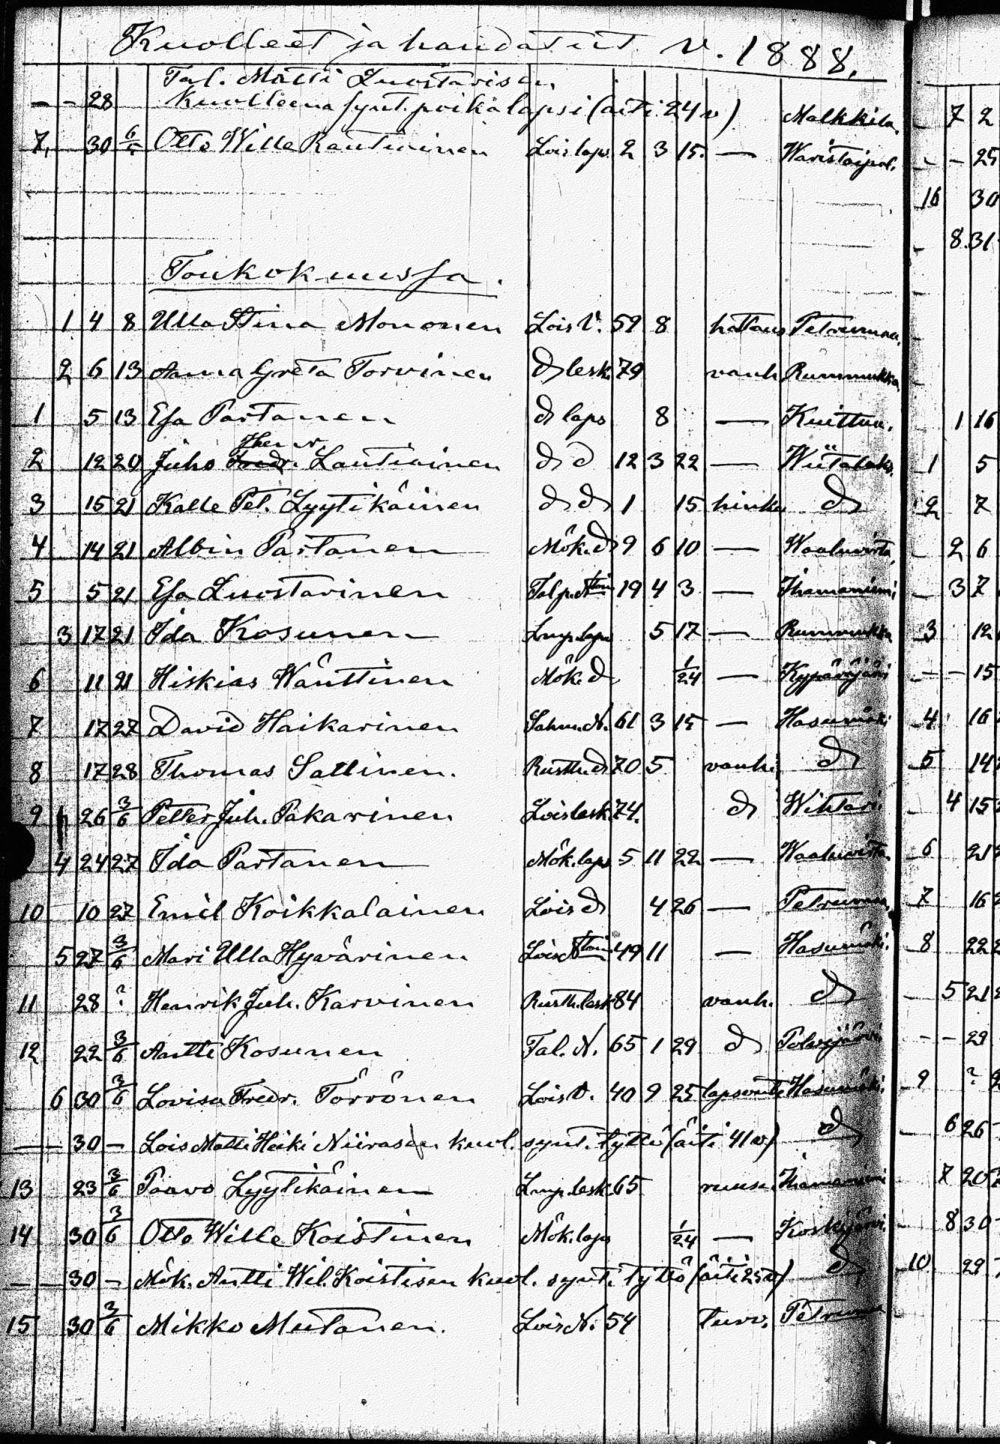 Kuolleet ja haudatut v. 1888.
Tal. Matti Luostarisen
— — 28 kuolleena synt. poikalapsi (äiti 24 v) Malkkila.
7. 30 6/5 Otto Wille Rautiainen Lois laps 2 3 15. — Waristaipal.
Toukokuussa.
1 4 8 Ulla Stina Mononen Lois V. 59 8 hattaus Petrumaa.
2 6 13 Anna Greta Torvinen d lesk. 79 vanh. Rummukka.
1 5 13 Esa Partanen d laps 8 — Kuittua.
Henr.
2 12 20 Juho Fredr. Lautiainen d d 12 3 22 — Wiitalaks.
3 15 21 Kalle Pet. Lyytikäinen d d 1 15 hinku d
4 14 21 Albin Partanen Mök. d 9 6 10 — Waaluvirta
5 5 21 Esa Luostarinen Tal. 19 4 3 — Ihamaniemi
3 17 21 Ida Kosunen Lmp. laps 5 17 — Rummukka
6 11 21 Hiskias Wänttinen Mök. d 1/24 — Kypäräjärvi
7 17 27 David Haikarinen N. 61 3 15 — Hasumäki
8 17 28 Thomas Sallinen. Rusth. d 70 5 vanh. d
9 26 3/6 Petter Juh. Pakarinen Lois lesk. 74. d Wihtari
4 24 27 Ida Partanen Mök. laps 5 11 22 — Waaluvirta
10 10 27 Emil Koikkalainen Lois d 4 26 — Petrumaa
5 27 3/6 Mari Ulla Hyvärinen Lois 49 11 — Hasumäki.
11 28 ? Henrik Juh. Karvinen Rusth. lesk 84 vanh. d
12 22 3/6 Antti Kosunen Tal. N. 65 1 29 d Polvijärvi
6 30 3/6 Lovisa Fredr. Törrönen Lois V. 40 9 25 lapsvuode Hasumäki.
— 30 — Lois Matti Heiki Niirasen kuol. synt. tyttö (äiti 41 v) d
13 23 3/6 Paavo Lyytikäinen Lmp. lesk 65 ruusu Ihamaniemi
14 30 3/6 Otto Wille Koistinen Mök. laps 1/24 — Koskijärvi
— — 30 — Mök. Antti Wil. Koistisen kuol. synt. tyttö (äiti 25 v) d
15 30 3/6 Mikko Mutanen. Lois N. 54 turv. Petrumaa